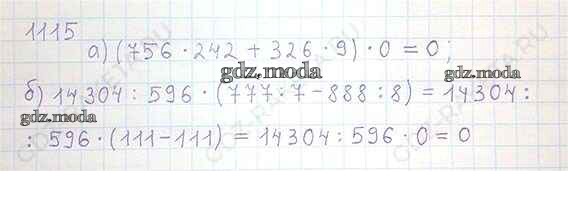 1115
а) (756 · 242 + 326 · 9) · 0 = 0;
gdz.moda
б) 14304 : 596 · (777 : 7 - 888 : 8) = 14304 :
gdz.moda
gdz.moda
: 596 · (111 - 111) = 14304 : 596 · 0 = 0